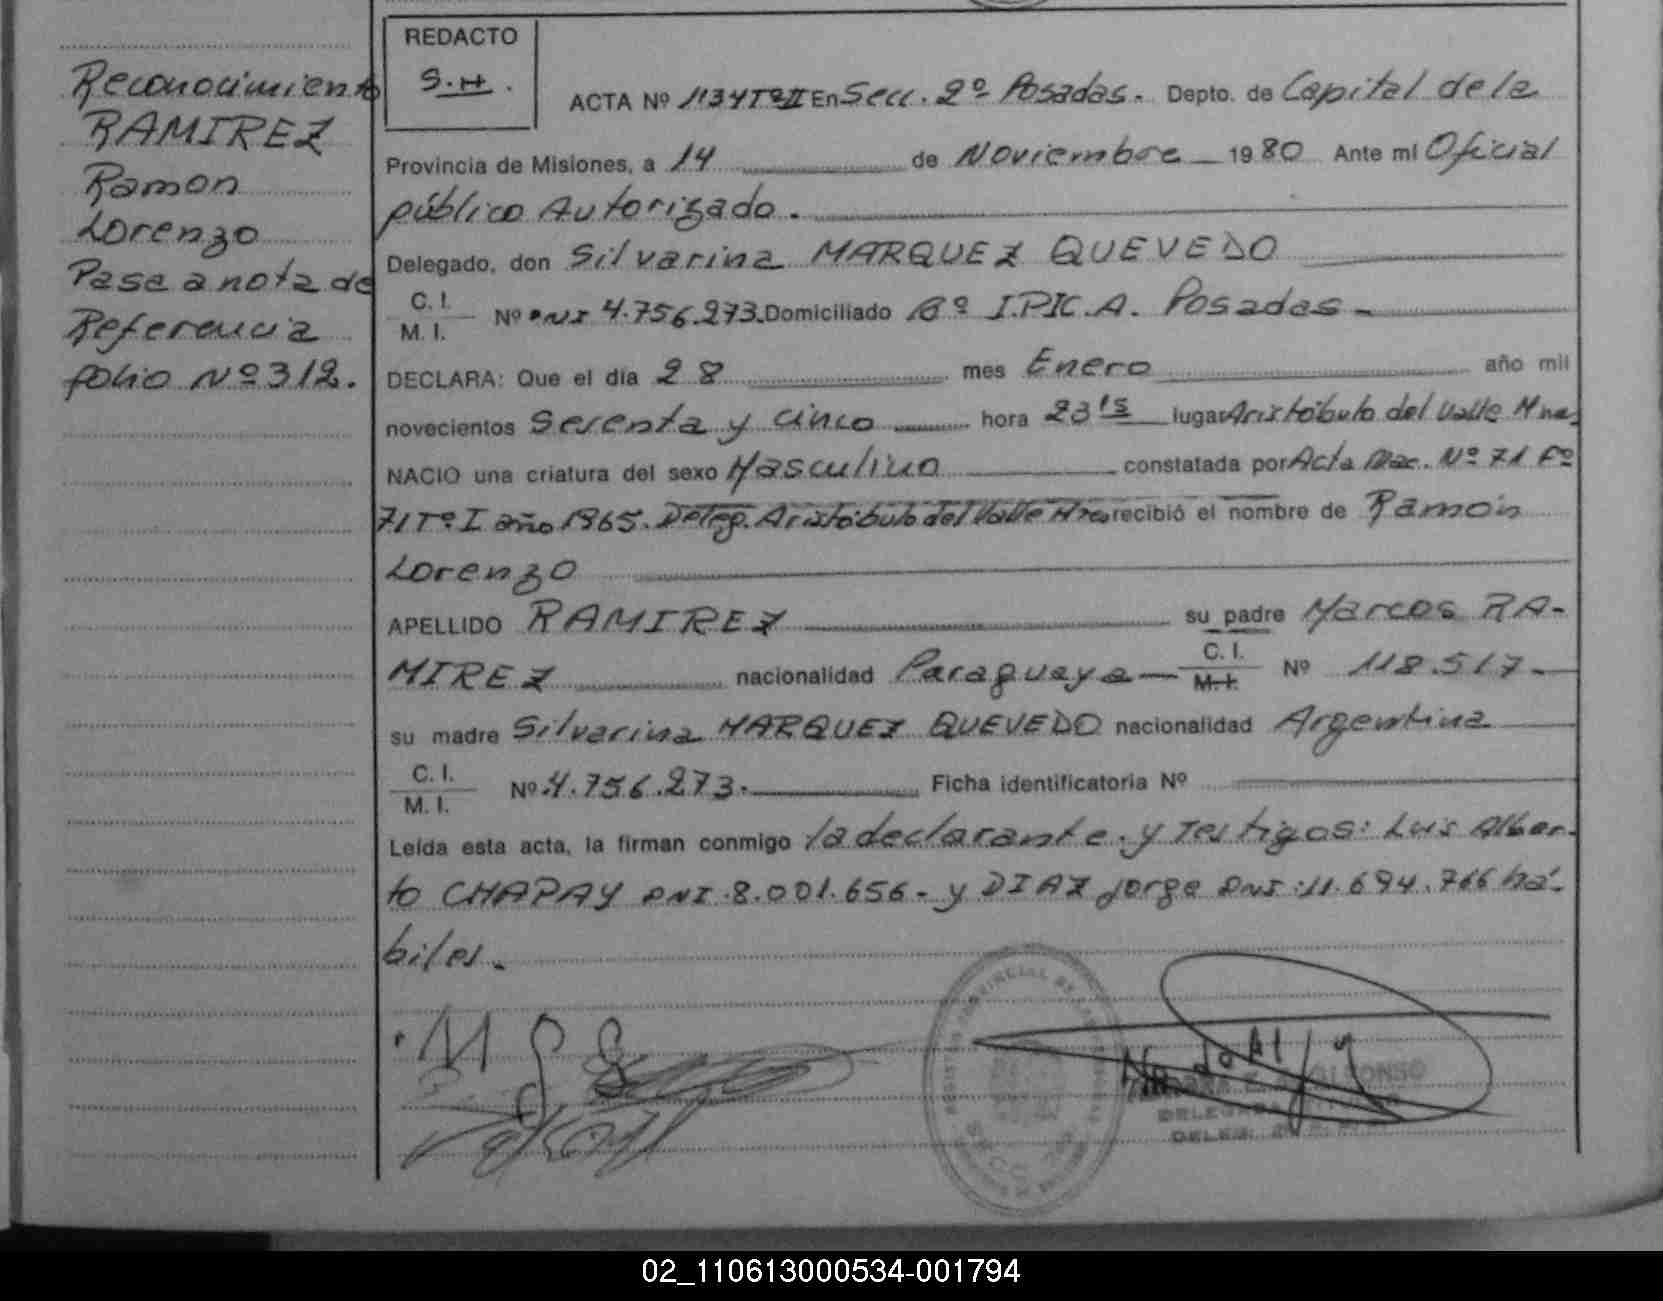 Reconocimiento
RAMIREZ
Ramon
Lorenzo
Pasa a nota de
Referencia
folio Nº 312.
REDACTO
S.H.
ACTA Nº 1134 Tº II En Secc. 2º Posadas. Depto. de Capital de la
Provincia de Misiones, a 14 de Noviembre 1980 Ante mí Oficial
público Autorizado.
Delegado, don Silvarina MARQUEZ QUEVEDO
C. I.
M. I.
Nº DNI 4.756.273. Domiciliado Bº I.P.I.C.A. Posadas
DECLARA: Que el día 28 mes Enero año mil
novecientos Sesenta y cinco hora 23 15 lugar Aristóbulo del Valle Mnes.
NACIO una criatura del sexo Masculino constatada por Acta Nac. Nº 71 Fº
71 Tº I año 1965. Deleg. Aristóbulo del Valle Mnes recibió el nombre de Ramón
Lorenzo
APELLIDO RAMIREZ su padre Marcos RA-
MIREZ nacionalidad Paraguaya C. I. M. I. Nº 118.517
su madre Silvarina MARQUEZ QUEVEDO nacionalidad Argentina
C. I.
M. I.
Nº 4.756.273. Ficha identificatoria Nº
Leída esta acta, la firman conmigo la declarante y Testigos: Luis Alber-
to CHAPAY DNI 8.001.656.- y DIAZ Jorge DNI 11.694.766 há-
biles.
02_110613000534-001794